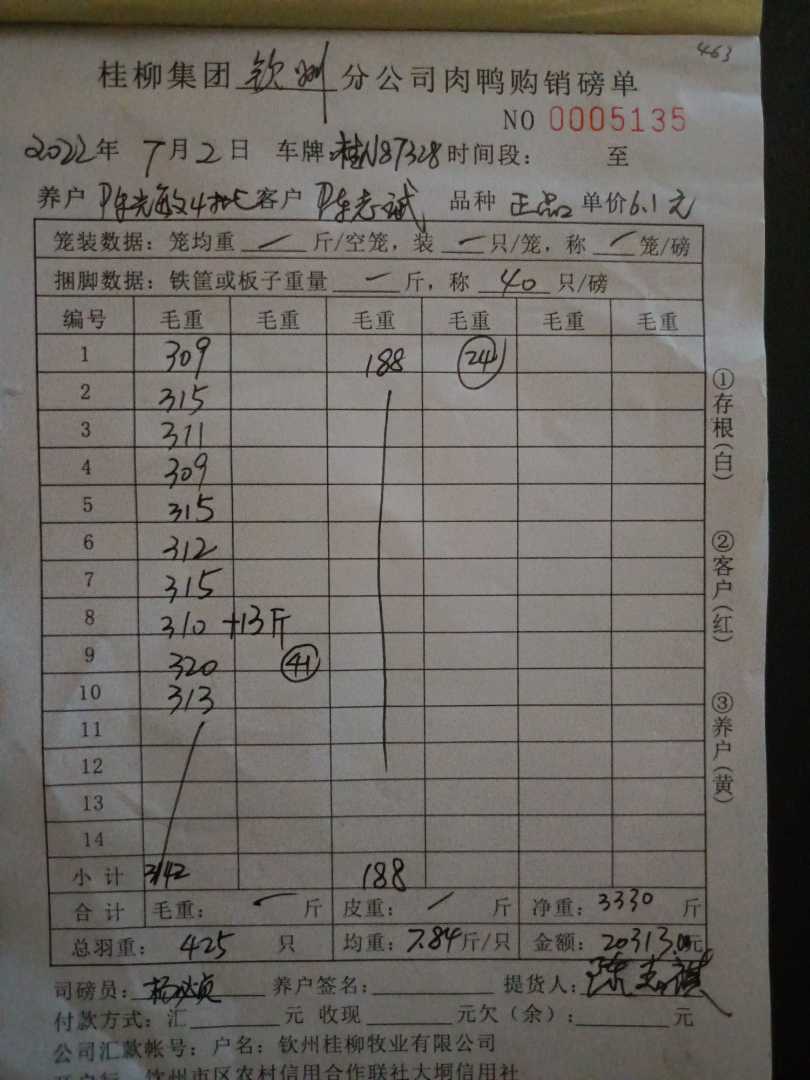 463
桂柳集团 钦州 分公司肉鸭购销磅单
NO 0005135
2022年 7月2日 车牌:桂N87328 时间段: 至
养户 陈光敏4批 客户 陈志斌 品种 正品 单价6.1元
笼装数据: 笼均重 — 斤/空笼, 装 — 只/笼, 称 — 笼/磅
捆脚数据: 铁筐或板子重量 — 斤, 称 40 只/磅
编号 毛重 毛重 毛重 毛重 毛重 毛重
1 309 188 24
2 315
3 311
4 309
5 315
6 312
7 315
8 310 +13斤
9 320 41
10 313
11
12
13
14
小计 3142 188
合计 毛重: — 斤 皮重: — 斤 净重: 3330 斤
总羽重: 425 只 均重: 7.84斤/只 金额: 20313.00元
司磅员: 养户签名: 提货人: 陈志
付款方式: 汇 元 收现 元欠(余): 元
公司汇款帐号: 户名: 钦州桂柳牧业有限公司
钦州市区农村信用合作联社大垌信用社
①存根(白)
②客户(红)
③养户(黄)